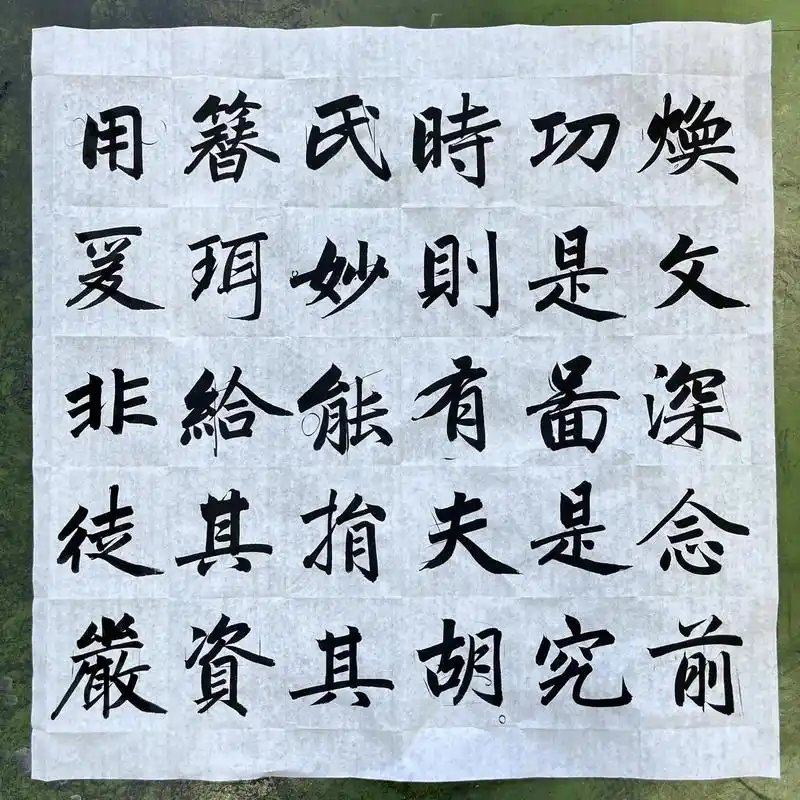 煥文深念前
功是啚是究
時則有夫胡
氏妙能捐其
簪珥給其資
用爰非徒嚴